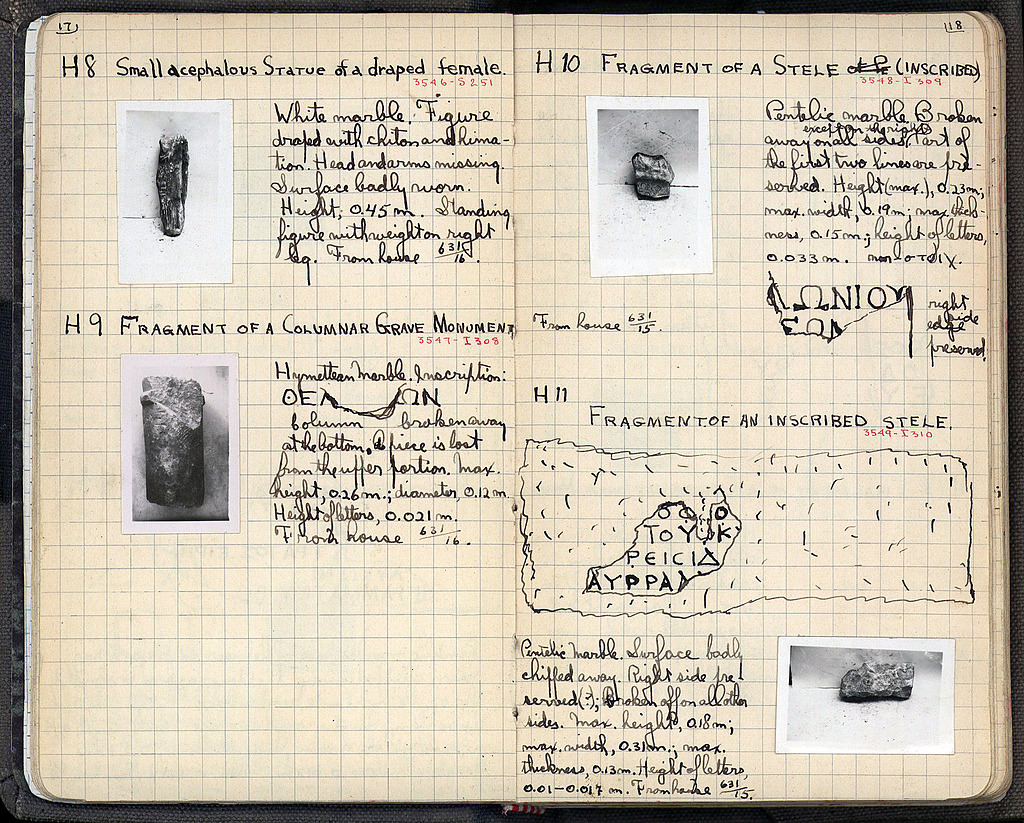 17
H8 Small acephalous Statue of a draped female.
3546-S251
White marble. Figure
draped with chiton and hima-
tion. Head and arms missing.
Surface badly worn.
Height, 0.45 m. Standing
figure with weight on right
leg. From house 631/16.
H9 FRAGMENT OF A COLUMNAR GRAVE MONUMENT
3547-I308
Hymettean Marble. Inscription:
ΘΕΛ ΩΝ
Column broken away
at the bottom. A piece is lost
from the upper portion. Max.
height, 0.26 m.; diameter, 0.12 m.
Height of letters, 0.021 m.
From house 631/16.
18
H10 FRAGMENT OF A STELE (INSCRIBED)
3548-I309
Pentelic marble. Broken
except on the right
away on all sides. Part of
the first two lines are pre-
served. Height (max.), 0.23 m;
max. width, 0.19 m; max. thick-
ness, 0.15 m.; height of letters,
0.033 m.
ΛΩΝΙΟΥ
ΕΩΛ
right
side
edge
preserved.
From house 631/15.
H11
FRAGMENT OF AN INSCRIBED STELE.
3549-I310
ΤΟΥ Κ
ΡΕΙCΙΔ
ΑΥΡΡΑΛ
Pentelic Marble. Surface badly
chipped away. Right side pre-
served(?); Broken off on all other
sides. Max. height, 0.18 m;
max. width, 0.31 m.; max.
thickness, 0.13 m. Height of letters,
0.01-0.017 m. From house 631/15.